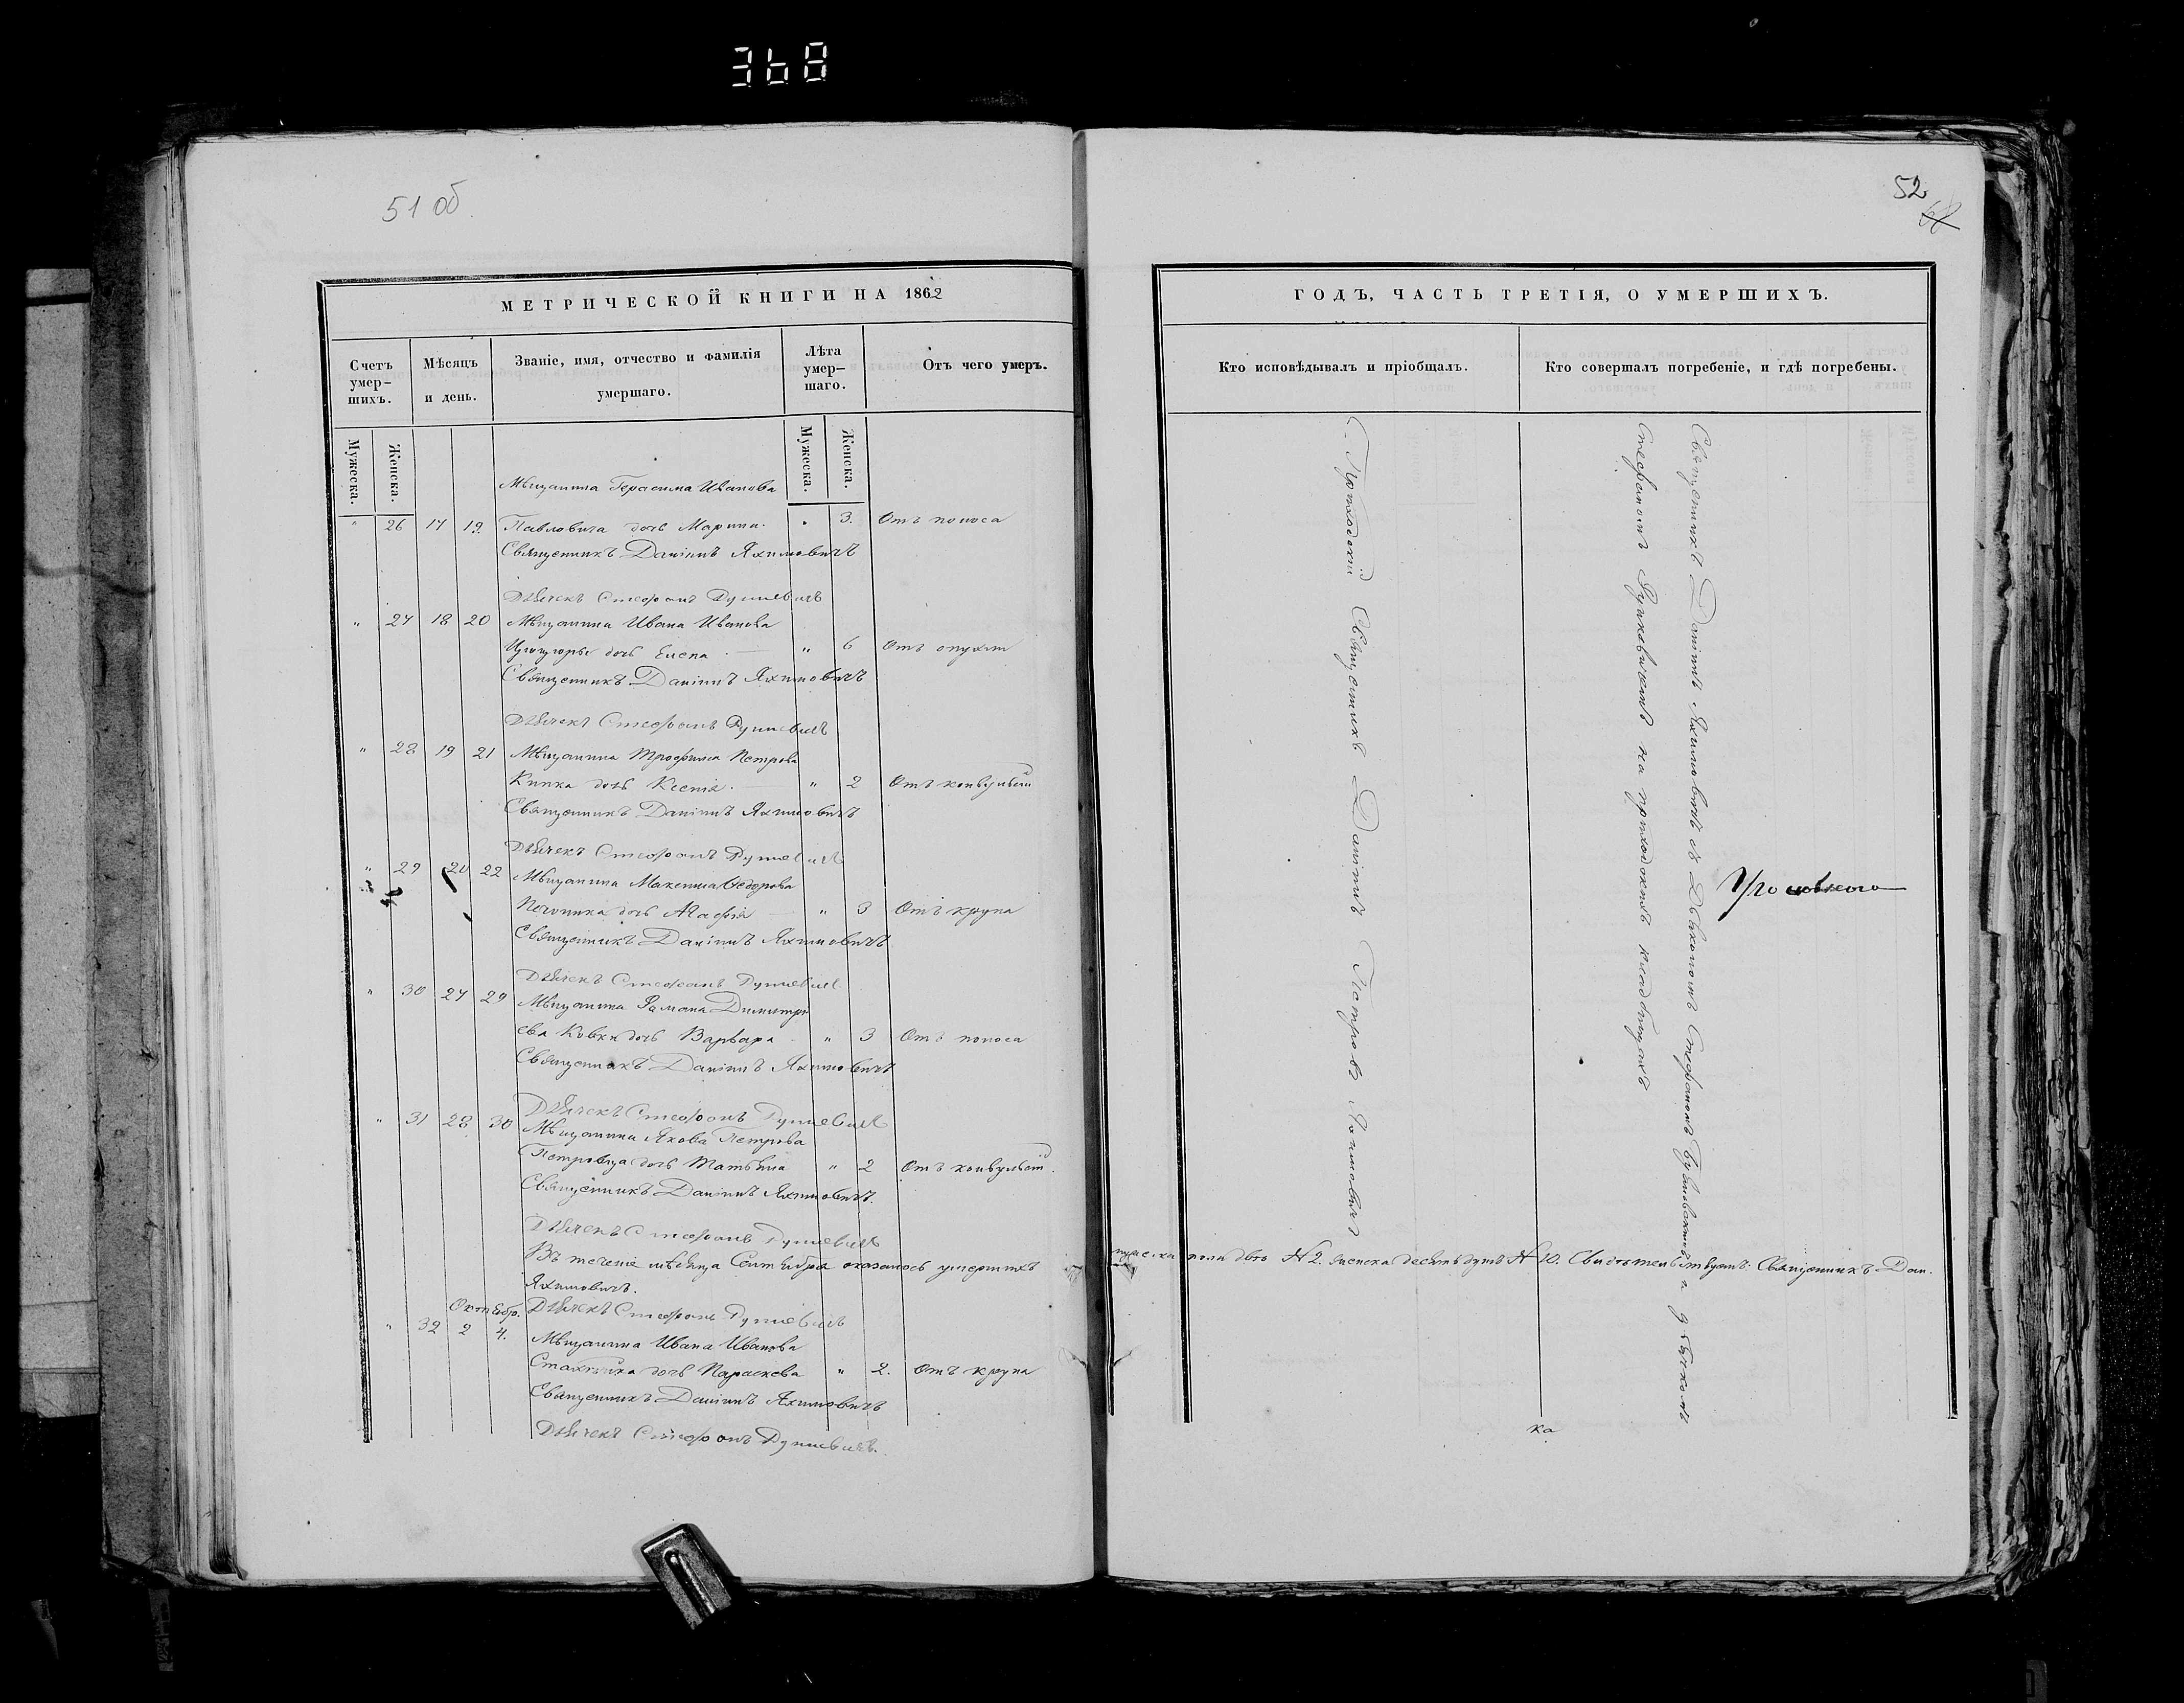 368
51 об
52
МЕТРИЧЕСКОЙ КНИГИ НА 1862
Счетъ умер-шихъ.
Мѣсяцъ и день.
Званіе, имя, отчество и фамилія умершаго.
Лѣта умер-шаго.
Отъ чего умеръ.
Мужеска.
Женска.
Мужеска.
Женска.
Мѣщанина Герасима Иванова
" 26 17 19 Павловича дочь Марина. " 3. Отъ поноса
Священникъ Даніилъ Яхимовичъ
Дьячекъ Стефанъ
" 27 18 20 Мѣщанина Ивана Иванова
дочь Елена " 6 Отъ опухли
Священникъ Даніилъ Яхимовичъ
Дьячекъ Стефанъ
" 28 19 21 Мѣщанина Трофима Петрова
дочь Ксенія. " 2 Отъ конвульсій
Священникъ Даніилъ Яхимовичъ
Дьячекъ Стефанъ
" 29 20 22 Мѣщанина Максима Ѳедорова
дочь Агафія " 3 Отъ крупа
Священникъ Даніилъ Яхимовичъ
Дьячекъ Стефанъ
" 30 27 29 Мѣщанина Романа Димитрі
ева дочь Варвара " 3 Отъ поноса
Священникъ Даніилъ Яхимовичъ
Дьячекъ Стефанъ
" 31 28 30 Мѣщанина Якова Петрова
дочь Татьяна " 2 Отъ конвульсій.
Священникъ Даніилъ Яхимовичъ.
Дьячекъ Стефанъ
Въ теченіе мѣсяца Сентября оказалось умершихъ
Яхимовичъ.
Октября. Дьячекъ Стефанъ
" 32 2 4. Мѣщанина Ивана Иванова
дочь Параскева " 2. Отъ крупа
Священникъ Даніилъ Яхимовичъ
Дьячекъ Стефанъ
ГОДЪ, ЧАСТЬ ТРЕТІЯ, О УМЕРШИХЪ.
Кто исповѣдывалъ и пріобщалъ.
Кто совершалъ погребеніе, и гдѣ погребены.
Приходскій Священникъ Даніилъ Петровъ Яхимовичъ
Священникъ Даніилъ Яхимовичъ съ Діакономъ Стефаномъ
Стефаномъ на приходскомъ кладбищахъ
мужеска пола два № 2. женска десять душъ № 10. Свидѣтельствуетъ: Священникъ Дан.
ка